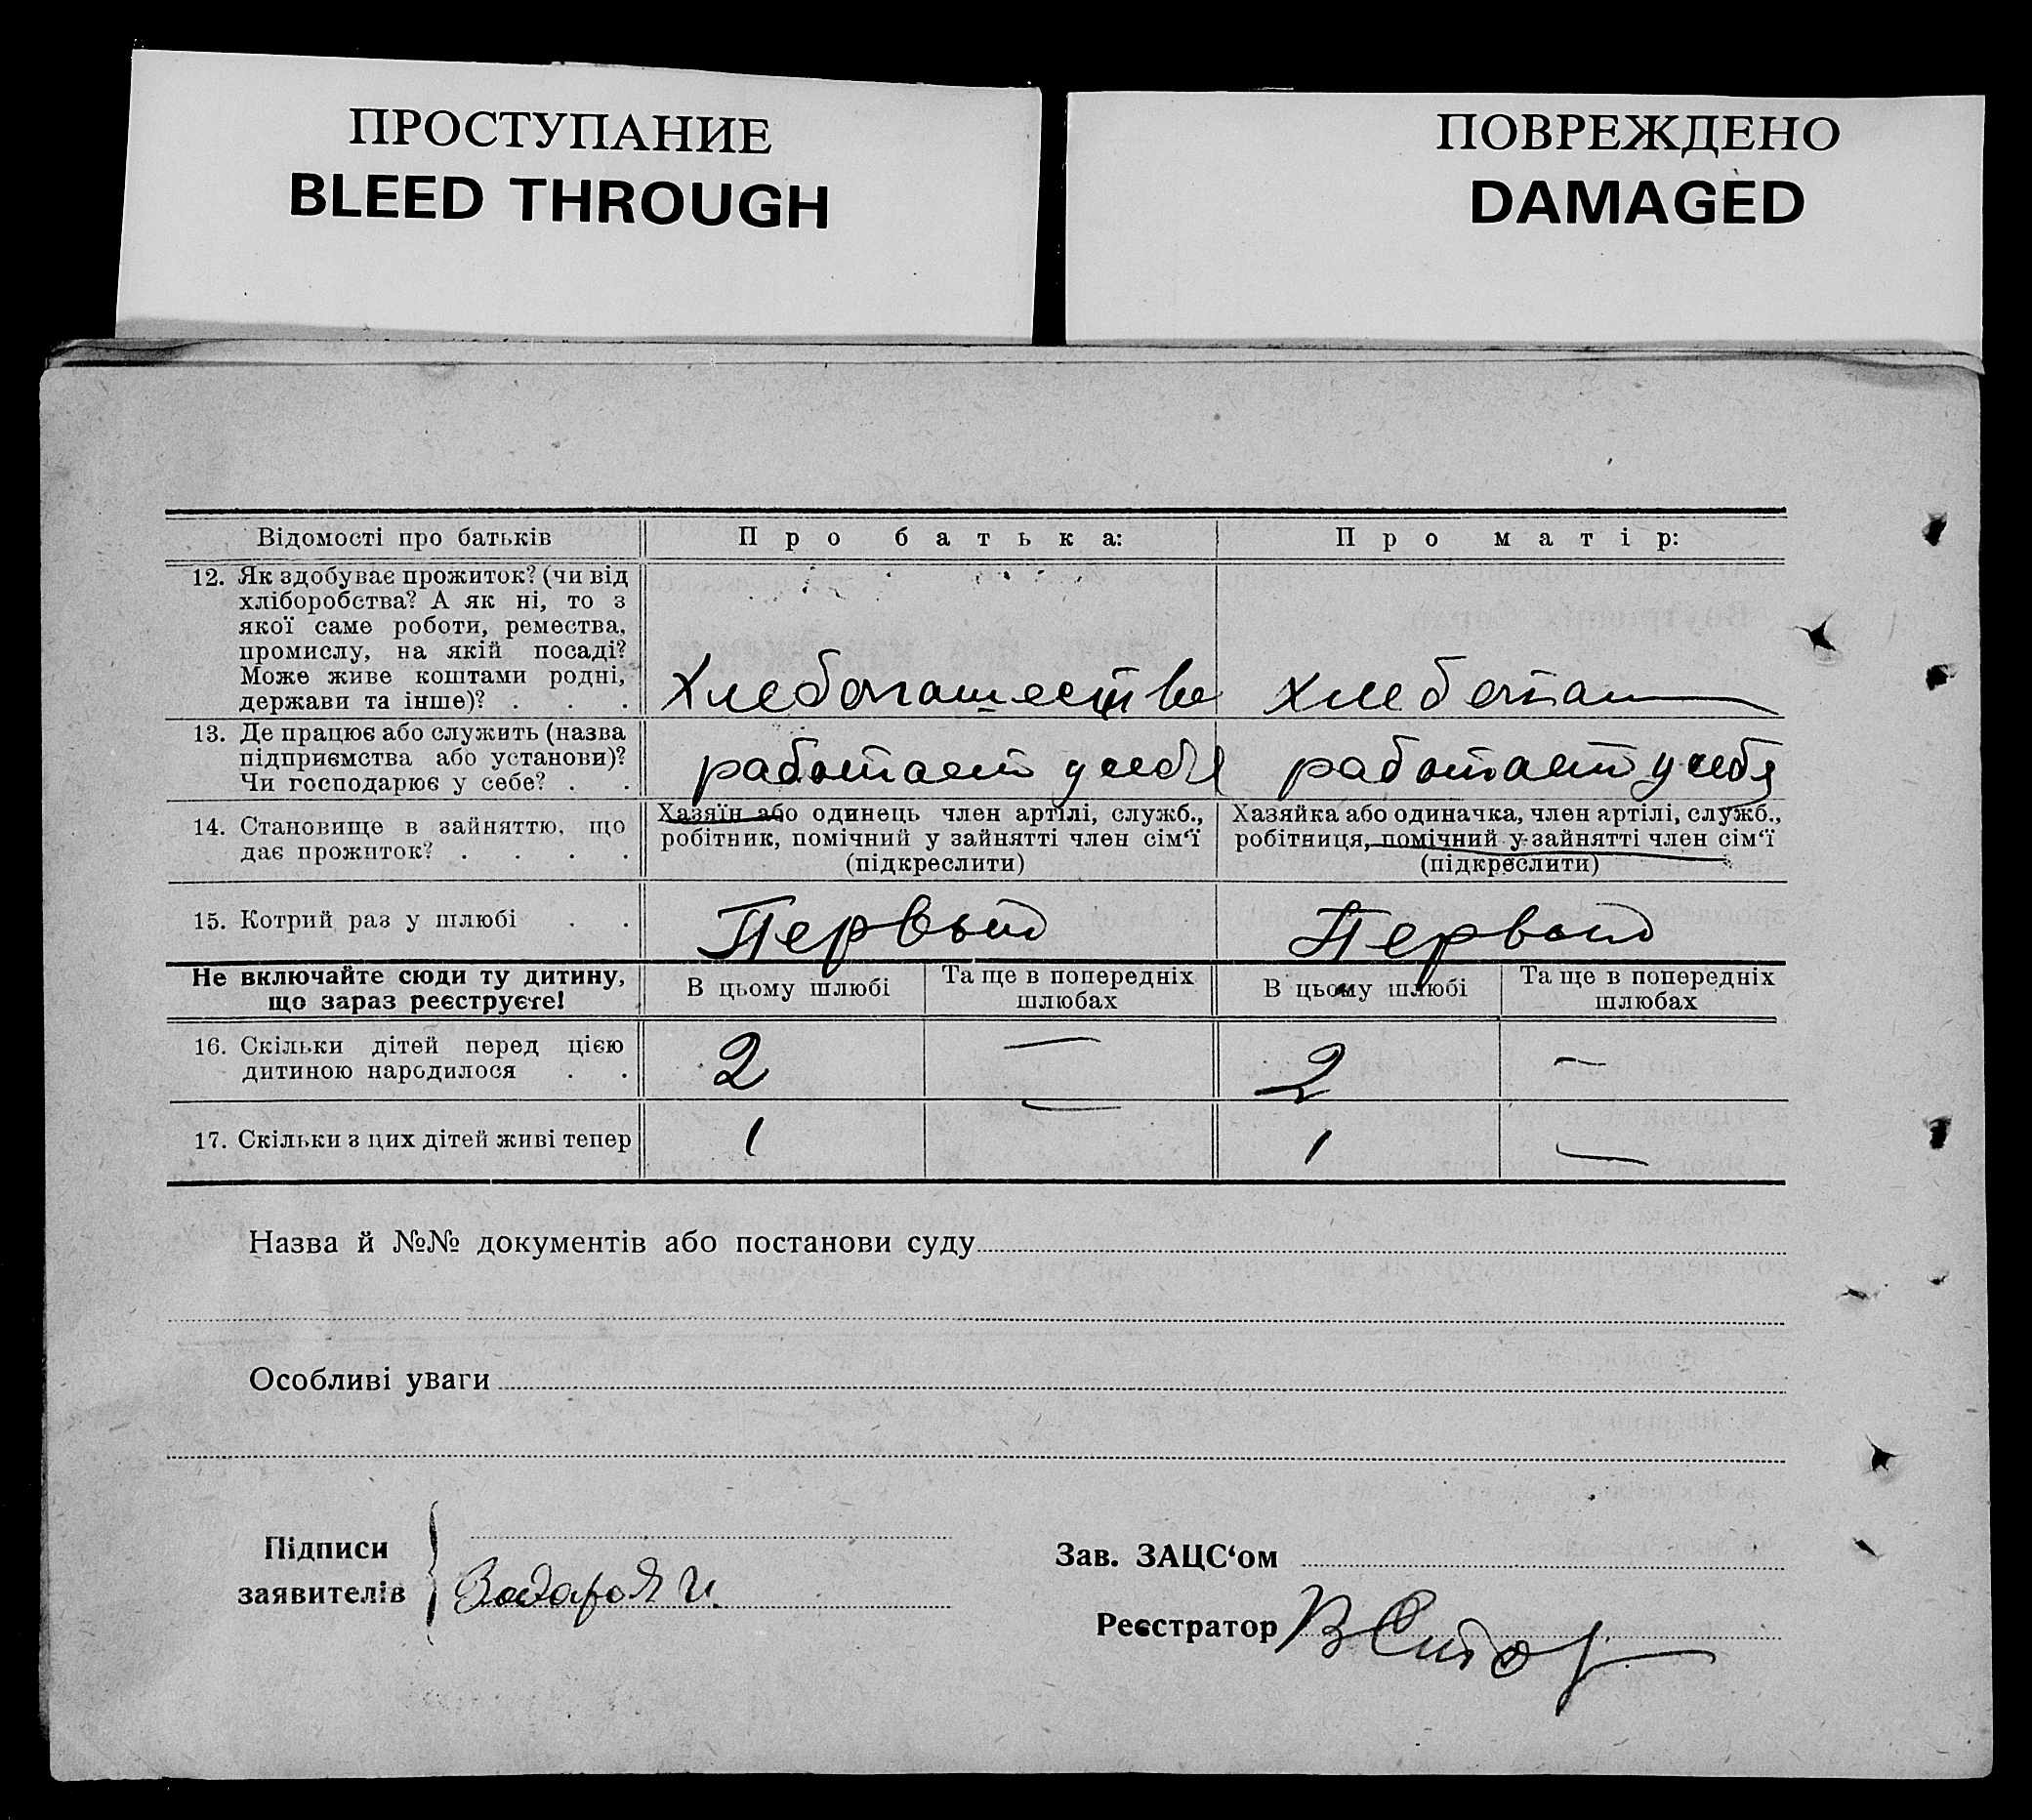 ПРОСТУПАНИЕ
BLEED THROUGH
ПОВРЕЖДЕНО
DAMAGED
Відомості про батьків
Про батька:
Про матір:
12. Як здобуває прожиток? (чи від
хліборобства? А як ні, то з
якої саме роботи, ремества,
промислу, на якій посаді?
Може живе коштами родні,
держави та інше)? . . .
Хлебопашество
хлебопаш
13. Де працює або служить (назва
підприємства або установи)?
Чи господарює у себе? . .
работает у себя
работает у себя
14. Становище в зайняттю, що
дає прожиток? . . . .
Хазяїн або одинець член артілі, служб.,
робітник, помічний у зайнятті член сім‘ї
(підкреслити)
Хазяйка або одиначка, член артілі, служб.,
робітниця, помічний у зайнятті член сім‘ї
(підкреслити)
15. Котрий раз у шлюбі . .
Первый
Первый
Не включайте сюди ту дитину,
що зараз реєструєте!
В цьому шлюбі
Та ще в попередніх
шлюбах
В цьому шлюбі
Та ще в попередніх
шлюбах
16. Скільки дітей перед цією
дитиною народилося . .
2 — 2 —
17. Скільки з цих дітей живі тепер
1 — 1 —
Назва й №№ документів або постанови суду
Особливі уваги
Підписи
заявителів
Зав. ЗАЦС‘ом
Реєстратор